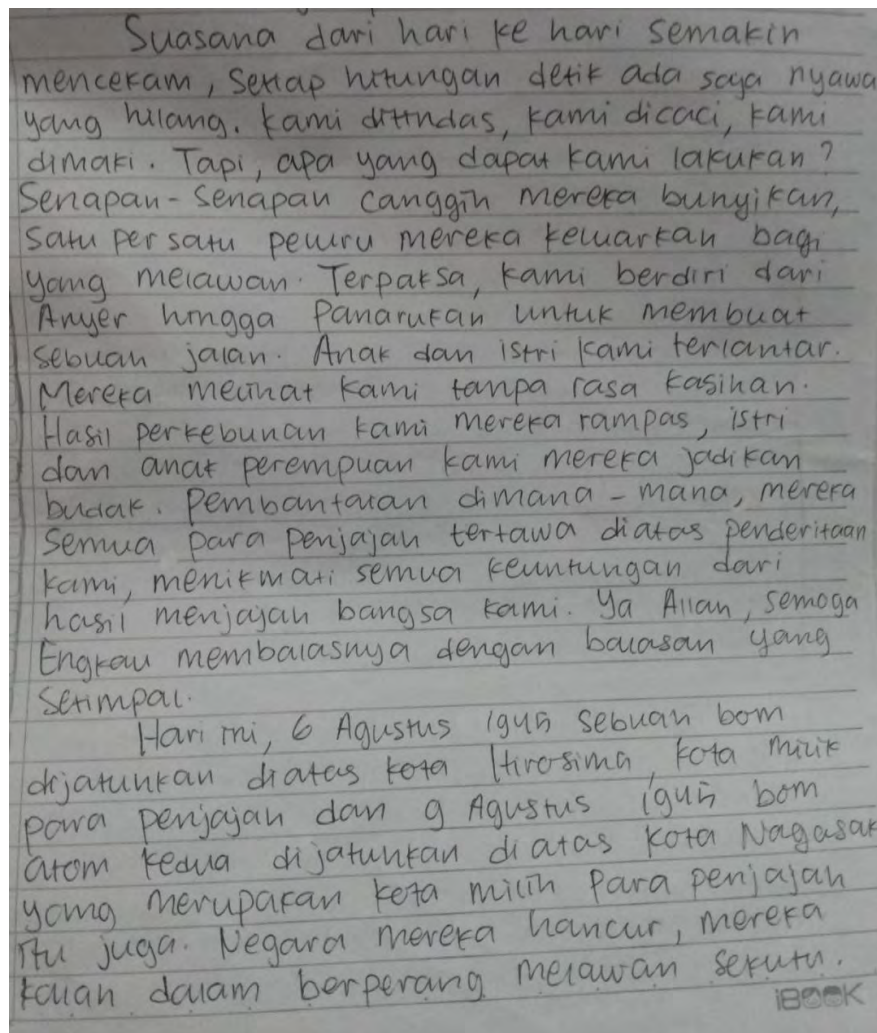 Suasana dari hari ke hari semakin
mencekam, Setiap hitungan detik ada saja nyawa
yang hilang. Kami ditindas, kami dicaci, kami
dimaki. Tapi, apa yang dapat kami lakukan?
Senapan-senapan canggih mereka bunyikan,
satu per satu peluru mereka keluarkan bagi
yang melawan. Terpaksa, kami berdiri dari
Anyer hingga Panarukan untuk membuat
sebuah jalan. Anak dan istri kami terlantar.
Mereka melihat kami tanpa rasa kasihan.
Hasil perkebunan kami mereka rampas, istri
dan anak perempuan kami mereka jadikan
budak. Pembantaian dimana-mana, mereka
semua para penjajah tertawa diatas penderitaan
kami, menikmati semua keuntungan dari
hasil menjajah bangsa kami. Ya Allah, semoga
Engkau membalasnya dengan balasan yang
setimpal.
Hari ini, 6 Agustus 1945 sebuah bom
dijatuhkan diatas kota Hirosima, kota milik
para penjajah dan 9 Agustus 1945 bom
atom kedua dijatuhkan diatas kota Nagasak
yang merupakan kota milih para penjajah
itu juga. Negara mereka hancur, mereka
kalah dalam berperang melawan sekutu.
iBOOK